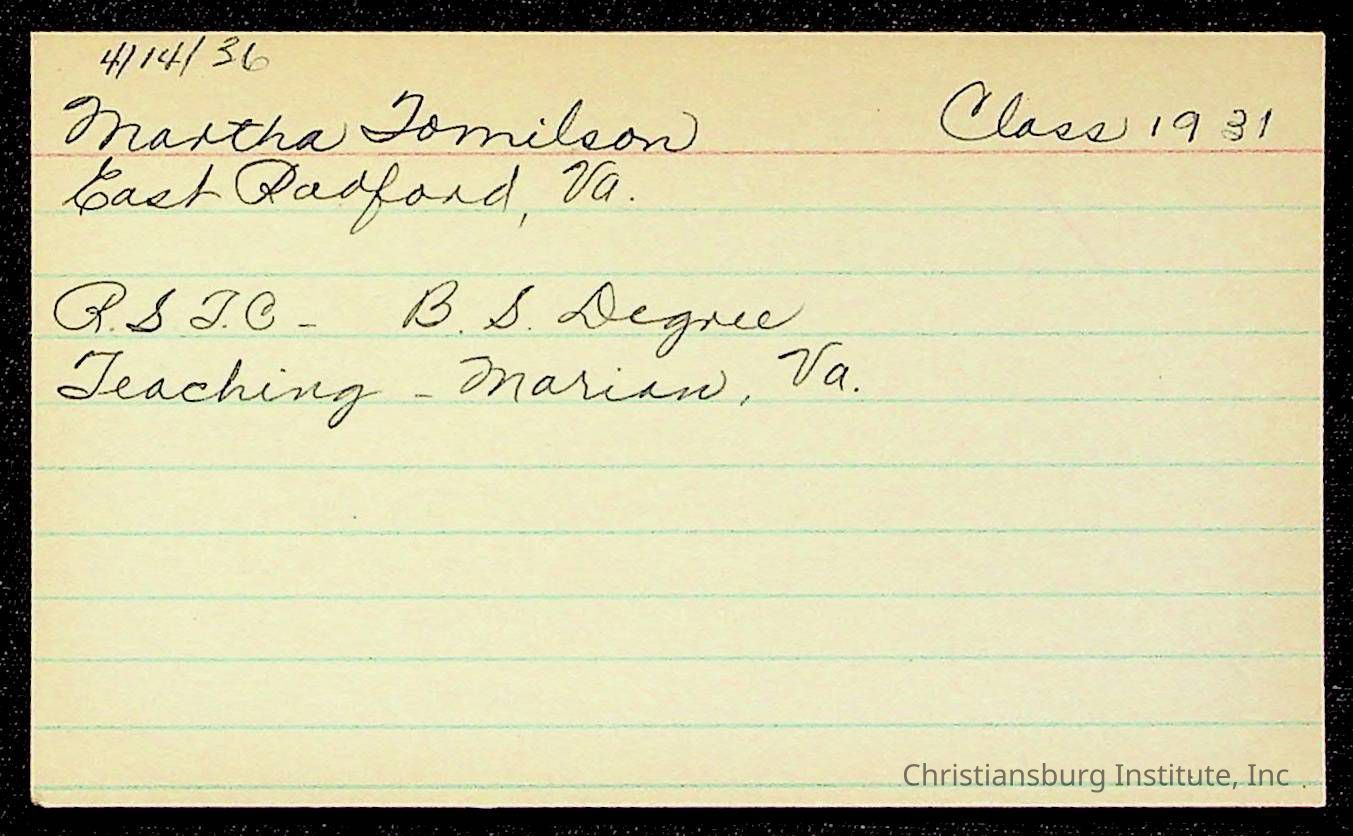 4/14/36
Martha Tomilson Class 1931
East Radford, Va.
R.S T.C - B.S. Degree
Teaching - Marion, Va.
Christiansburg Institute, Inc